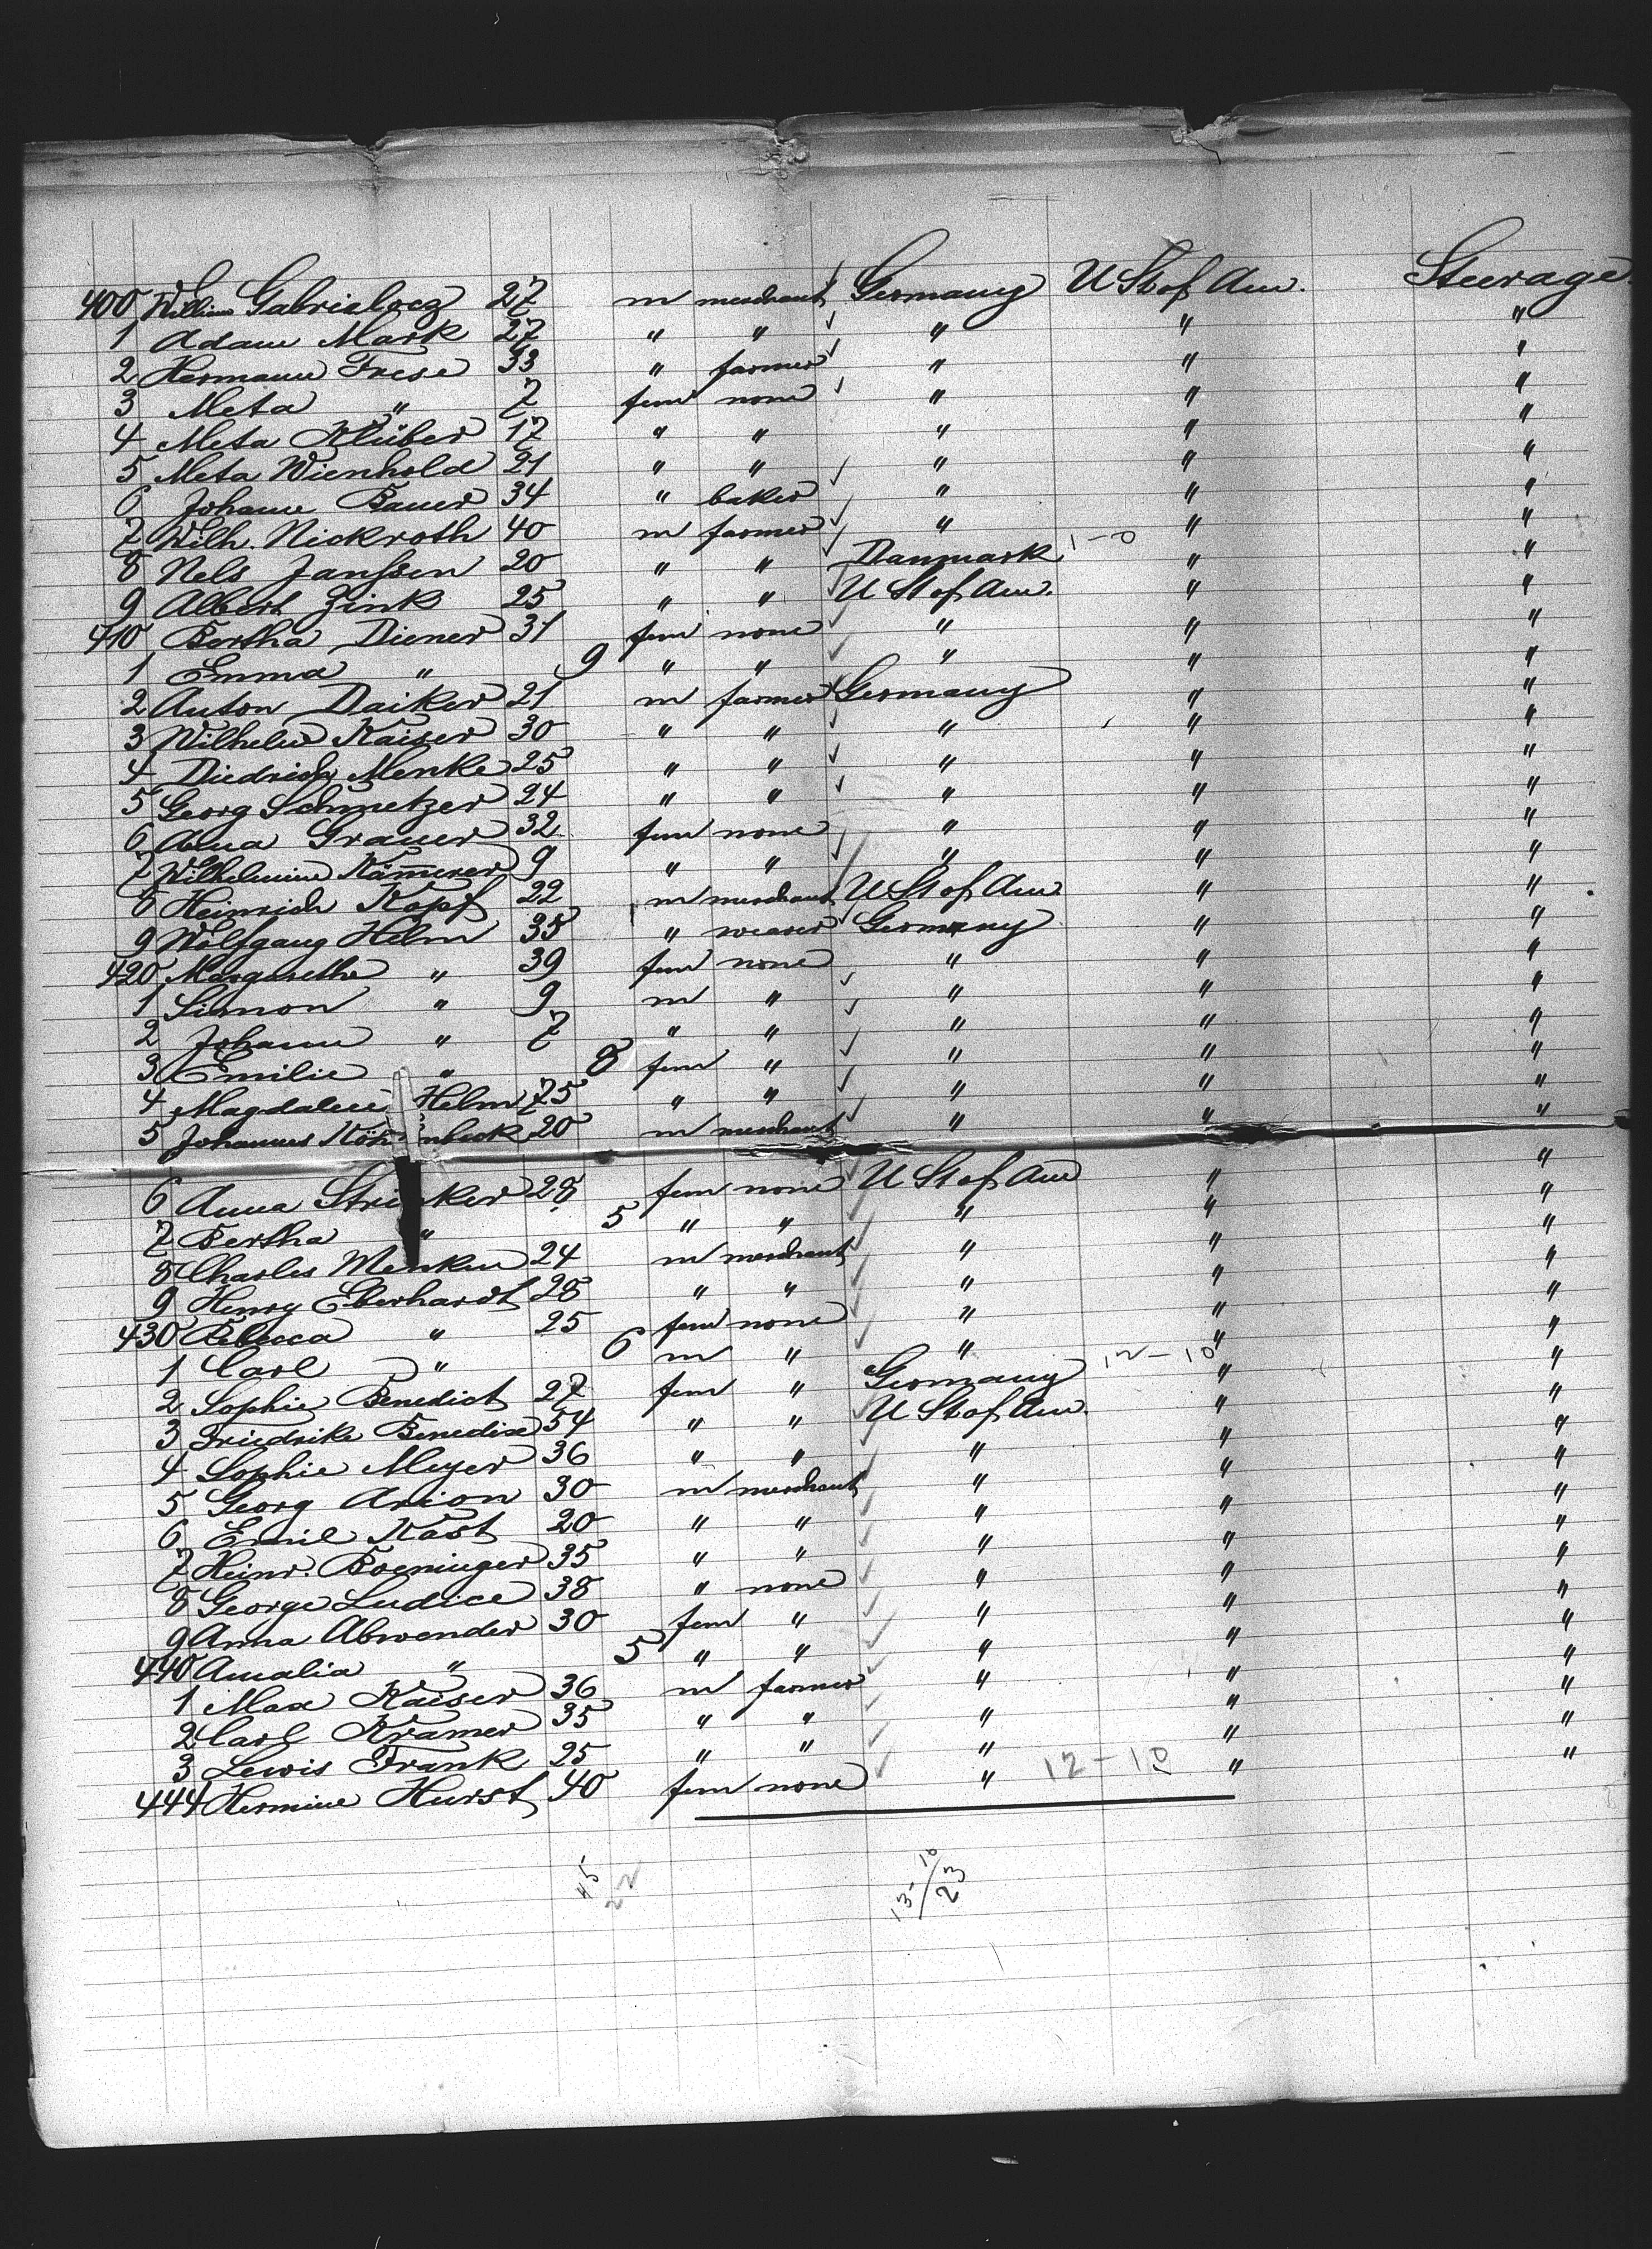 400 William Gabrielocz 27 m merchant Germany U St of Am. Steerage
1 Adam Mark 27 " " " " "
2 Hermann Frese 33 " farmer " " "
3 Meta " 7 fem none " " "
4 Meta Klüber 17 " " " " "
5 Meta Wienhold 21 " " " " "
6 Johann Bauer 34 " baker " " "
7 Wilh. Nickroth 40 m farmer " " "
8 Nels Janssen 20 " " Danmark 1-0 " "
9 Albert Zink 25 " " U St of Am. " "
410 Bertha Diener 31 fem none " " "
1 Emma " 9 " " " " "
2 Anton Daiker 21 m farmer Germany " "
3 Wilhelm Kaiser 30 " " " " "
4 Diedrich Menke 25 " " " " "
5 Georg Schmetzer 24 " " " " "
6 Anna Grauer 32 fem none " " "
7 Wilhelmine Kämmerer 9 " " " " "
8 Heinrich Kopf 22 m merchant U St of Am " "
9 Wolfgang Helm 35 " weaver Germany " "
420 Margarethe " 39 fem none " " "
1 Simon " 9 m " " " "
2 Johann " 7 " " " " "
3 Emilie " 8 fem " " " "
4 Magdalene Helm 75 " " " " "
5 Johannes 20 m merchant " " "
6 Anna Stricker 28 fem none U St of Am " "
7 Bertha " 5 " " " " "
8 Charles Menken 24 m merchant " " "
9 Henry Eberhardt 28 " " " " "
430 Rebecca " 25 fem none " " "
1 Carl " 6 m " " " "
2 Sophie Benedict 27 fem " Germany 12-10 " "
3 Friedrike Benedix 54 " " U St of Am. " "
4 Sophie Meyer 36 " " " " "
5 Georg Arion 30 m merchant " " "
6 Emil Kast 20 " " " " "
7 Heinr. Boeninger 35 " " " " "
8 George Ludice 38 " none " " "
9 Anna Abwender 30 fem " " " "
440 Amalia " 5 " " " " "
1 Max Kaiser 36 m farmer " " "
2 Carl Kramer 35 " " " " "
3 Lewis Frank 25 " " " " "
444 Hermine Hurst 40 fem none " 12-10 " "
45 22 13-10 / 23